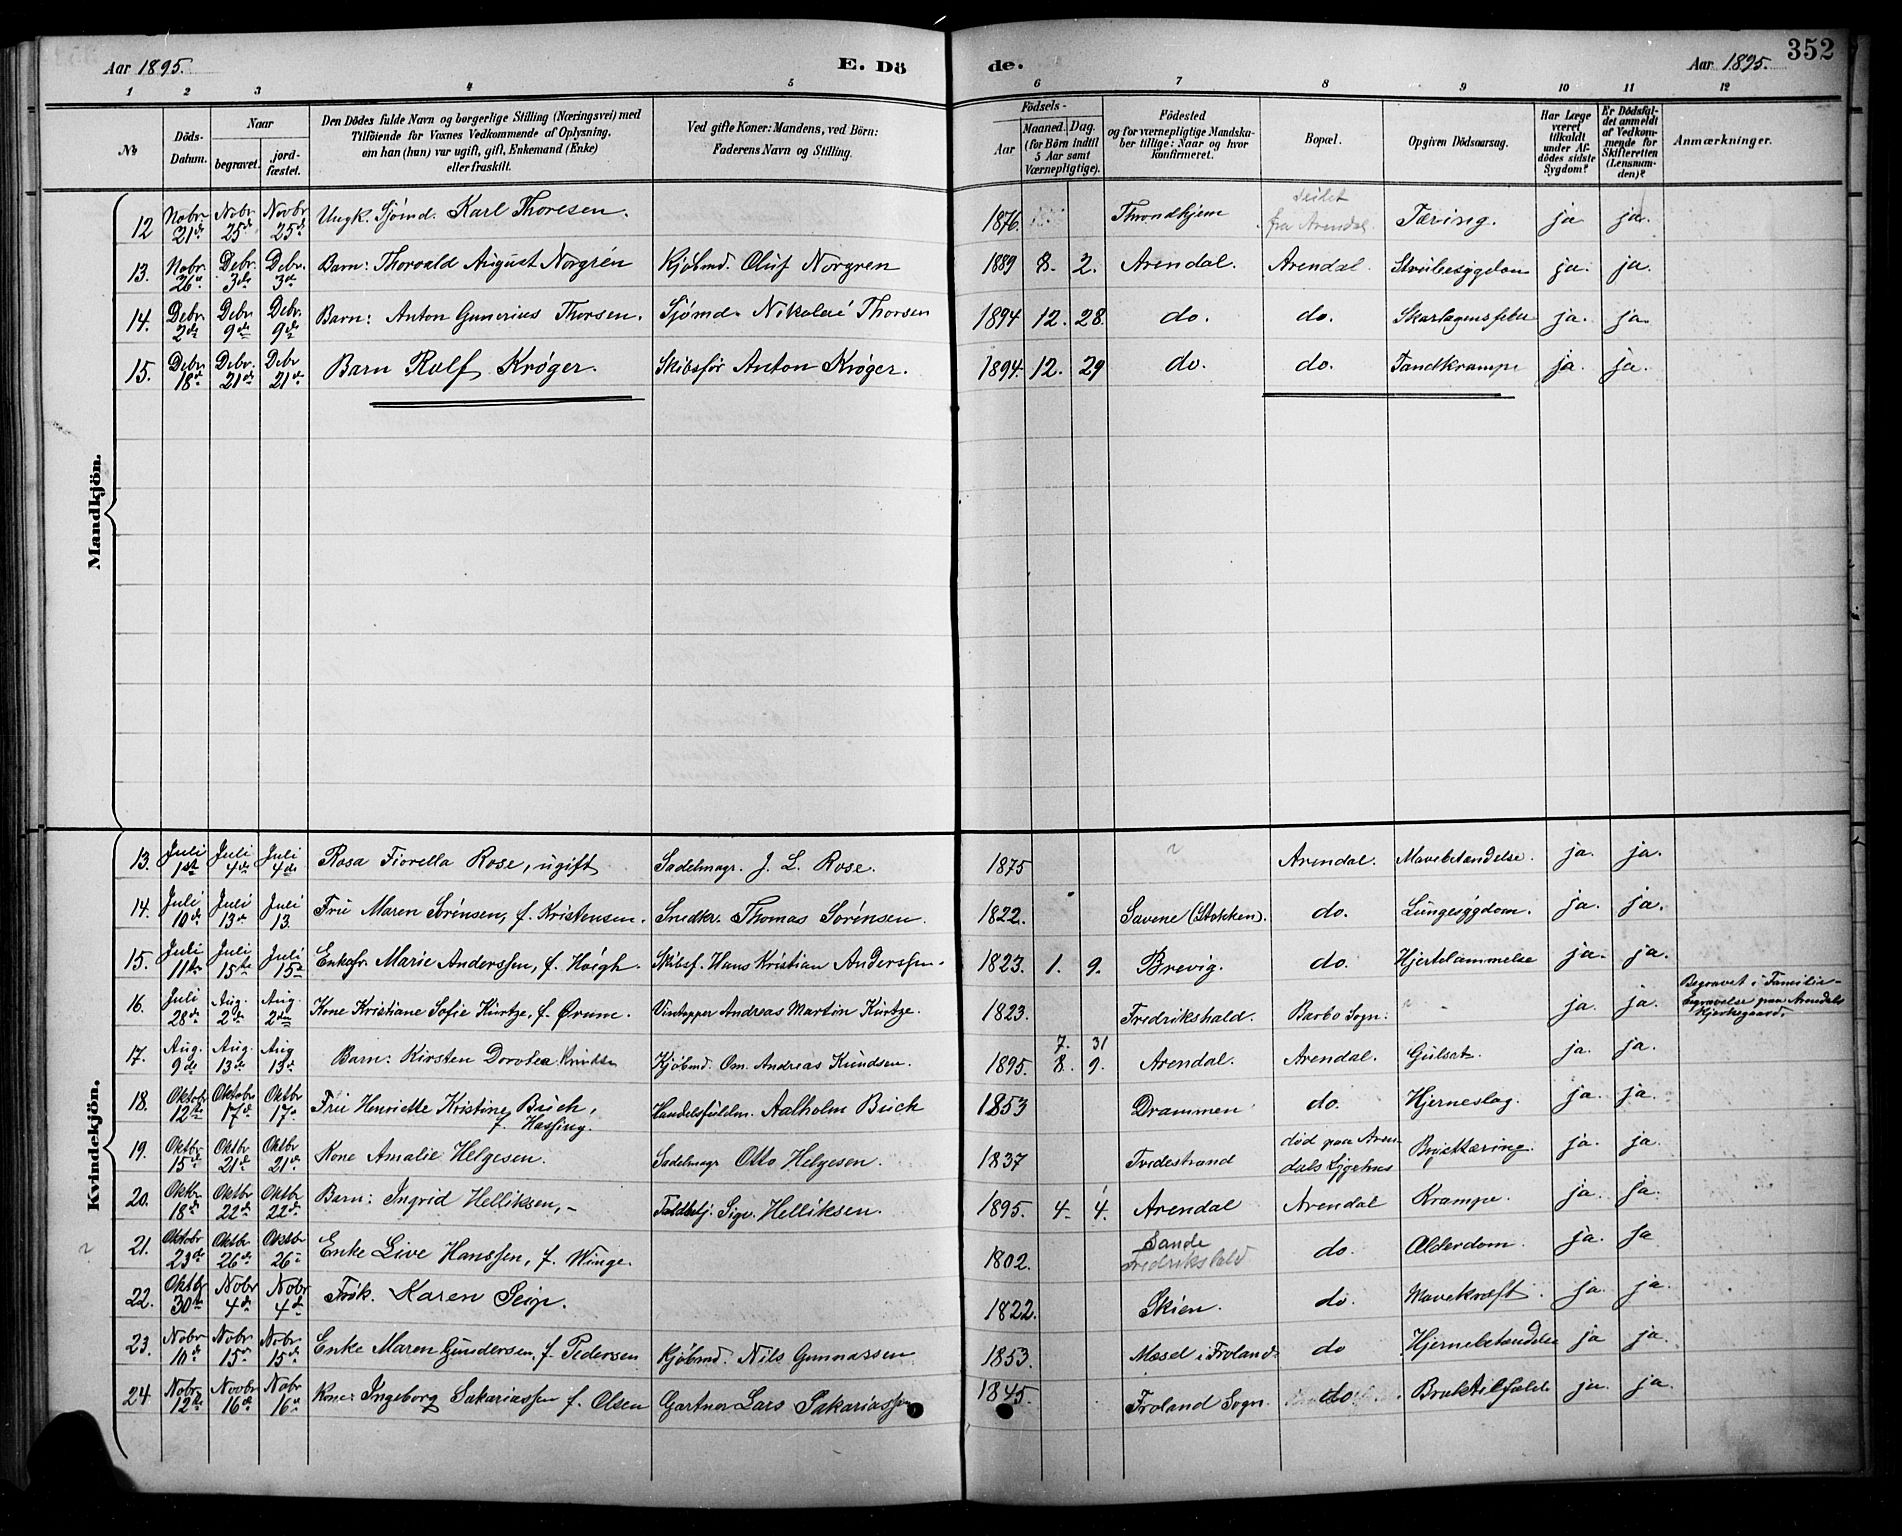 Aar 1895. E. Dö de. Aar 1895. 352
1 2 3 4 5 6 7 8 9 10 11 12
№ Döds-Datum. Naar begravet. jordfæstet. Den Dödes fulde Navn og borgerlige Stilling (Næringsvei) med Tilföiende for Voxnes Vedkommende af Oplysning. om han (hun) var ugift, gift, Enkemand (Enke) eller fraskilt. Ved gifte Koner: Mandens, ved Börn: Faderens Navn og Stilling. Födsels- Aar Maaned. Dag. (for Börn indtil 5 Aar samt Værnepligtige). Födested og for værnepligtige Mandskaber tillige: Naar og hvor konfirmeret. Bopæl. Opgiven Dödsaarsag. Har Læge været tilkaldt under Afdödes sidste Sygdom? Er Dödsfaldet anmeldt af Vedkommende for Skifteretten (Lensmanden)? Anmærkninger.
Mandkjön.
12 Nobr. 21de Nobr. 25de Novbr 25de Ungk. Sjømd. Karl Thoresen. 1876 Throndhjem fra Arendal. Tæring. ja ja.
13. Nobr. 26de Debr. 3de Debr. 3de Barn: Thorvald August Norgrén Kjøbmd. Oluf Norgren 1889 8. 2. Arendal. Arendal. Strubesygdom ja. ja.
14. Debr. 2de Debr. 9de Debr. 9de Barn: Anton Gunerius Thorsen. Sjømd. Nikolai Thorsen 1894 12. 28. do. do. Skarlagensfeber ja. ja.
15. Debr. 18de Debr. 21de Debr 21de Barn Rolf Krøger. Skibsfør Anton Krøger. 1894. 12. 29 do. do. Tandkrampe ja. ja.
Kvindekjön.
13. Juli 1st Juli 4de Juli 4de Rosa Fiorella Rose, ugift Sadelmagr. J. L. Rose. 1875 Arendal. Mavebetændelse. ja. ja.
14. Juli 10de Juli 13de Juli 13. Frú Maren Sørensen, f. Kristensen. Snedkr. Thomas Sørensen. 1822. Savene (Stokken). do. Lungesygdom. ja. ja.
15. Juli 11te Juli 15te Juli 15de Enkefr. Marie Anderssen, f. Høigh. Skibsf. Hans Kristian Anderssen. 1823. 1. 9. Brevig. do. Hjertelammelse ja. ja.
16. Juli 28de Aug. 2de Aug. 2den Kone Kristiane Sofie Kurtze, f. Ørum. Vintapper Andreas Martin Kurtze. 1823. Fredrikshald. Barbo Sogn: " - ja. ja. Begravet i Familie-begravelse paa Arendals Kjerkegaard.
17. Aug. 9de Aug. 13de Aug 13de Barn: Kirsten Dorotea Knudsen Kjøbmd. Om. Andreas Knudsen. 1895. 7. 31 8. 9. Arendal. Arendal. Gulsot. ja. ja.
18. Oktobr 12te Oktobr 17de Oktbr 17de Frú Henriette Kristine Buch, f. Hassing. Handelsfuldm. Aalholm Buch 1853 Drammen do. Hjerneslag. ja. ja.
19. Oktbr. 15de Oktbr 21de Oktbr 21de Kone Amalie Helgesen. Sadelmagr Otto Helgesen. 1837 Tvedestrand død paa Arendals Sygehus Brysttæring. ja. ja.
20. Oktbr 18de Oktbr 22de Oktbr 22de Barn: Ingrid Helliksen, - Toldbetj. Sigv. Helliksen. 1895. 4. 4. Arendal Arendal Krampe. ja. ja.
21. Oktobr 23de Oktbr 26de Oktbr 26de Enke Live Hanssen, f. Winge. 1802. Sande Fredrikshald do. Alderdom. ja. ja
22. Oktbr 30te Nobr 4de Nobr 4de Frøk. Karen Seip. 1822. Skien. do. Mavekræft. ja. ja.
23. Nobr 10de Nobr 15de Nobr. 15de Enke Maren Gundersen, f. Pedersen Kjøbmd. Nils Gunnassen 1853. Mæsel i Froland. do Hjernebetændelse ja ja.
24. Nobr. 12te Novbr 16de Nobr 16de Kone Ingeborg Sakariassen f. Olsen Gartner Lars Sakariassen 1845. Froland Sogn. do Broktilfælde ja. ja.